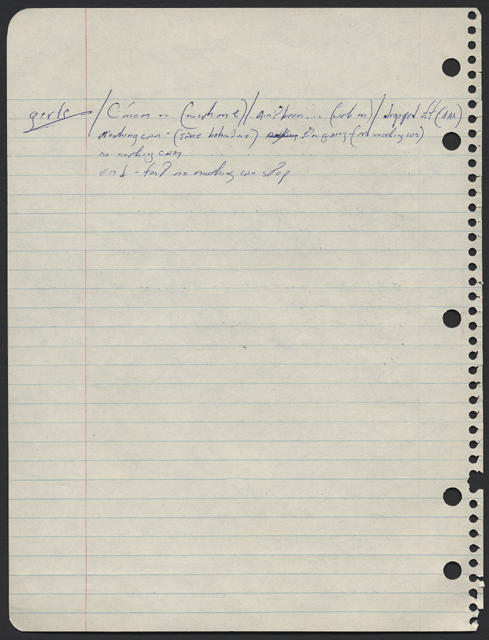 girls / C'mon .. (with me) / ain't been ... (with m) / dropped off (
nothing can - (Jane behind me) I'm going (no nothing can)
no nothing can
end - fast no nothing can stop